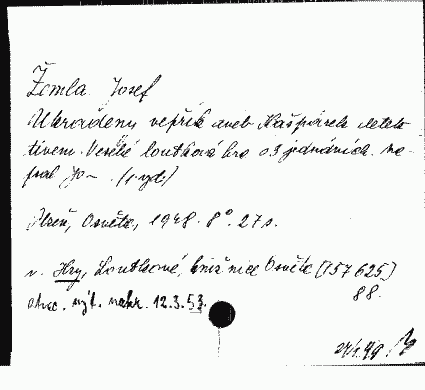 Žemla Josef
Ukradený vepřík aneb Kašpárek detek-
tivem. Veselá loutková hra o 3 jednáních. Na-
psal Jo- . (1 vyd.)
Plzeň, Osvěta, 1948. 8°. 27 s.
v. Hry, Loutkové, knižnice Osvěta (157625)
88.
12.3.53.